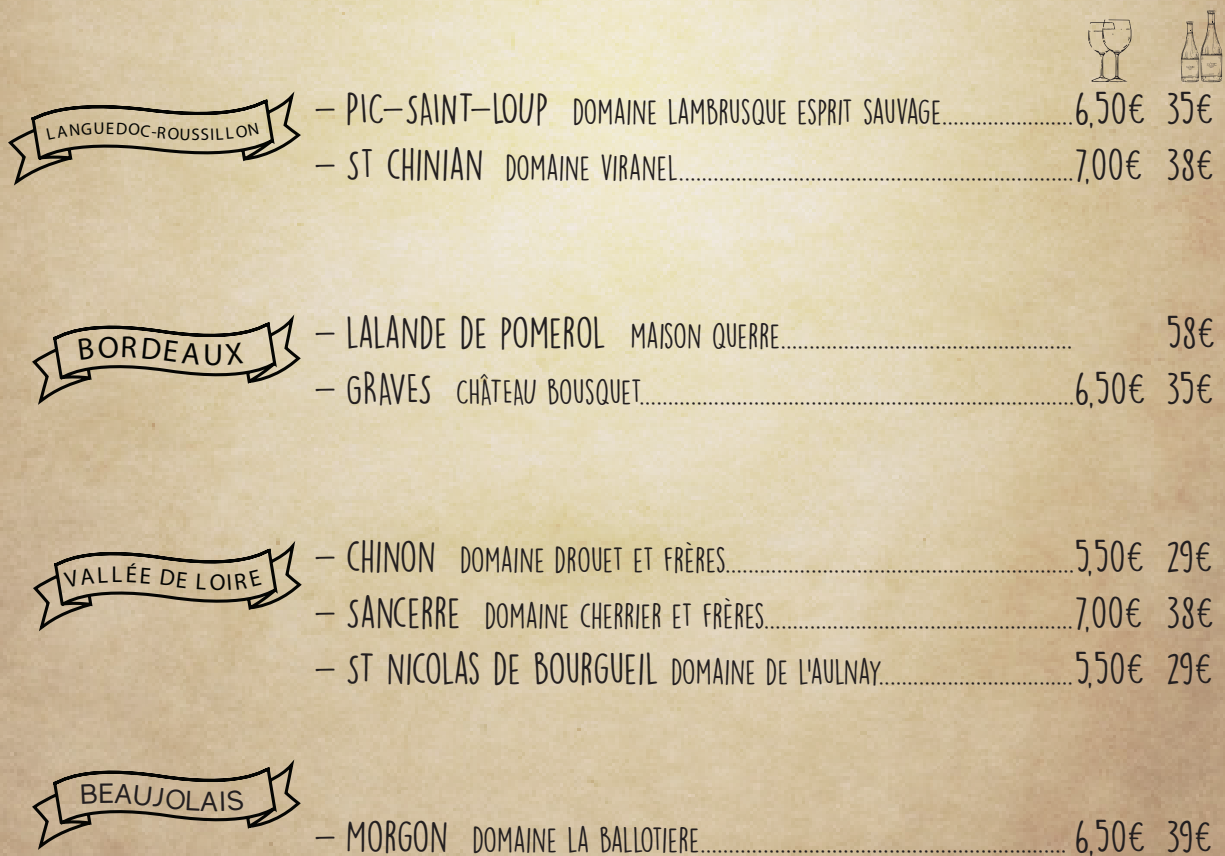 LANGUEDOC-ROUSSILLON
– PIC-SAINT-LOUP DOMAINE LAMBRUSQUE ESPRIT SAUVAGE....................6,50€ 35€
– ST CHINIAN DOMAINE VIRANEL....................7,00€ 38€
BORDEAUX
– LALANDE DE POMEROL MAISON QUERRE.................... 58€
– GRAVES CHÂTEAU BOUSQUET....................6,50€ 35€
VALLÉE DE LOIRE
– CHINON DOMAINE DROUET ET FRÈRES....................5,50€ 29€
– SANCERRE DOMAINE CHERRIER ET FRÈRES....................7,00€ 38€
– ST NICOLAS DE BOURGUEIL DOMAINE DE L'AULNAY....................5,50€ 29€
BEAUJOLAIS
– MORGON DOMAINE LA BALLOTIERE....................6,50€ 39€